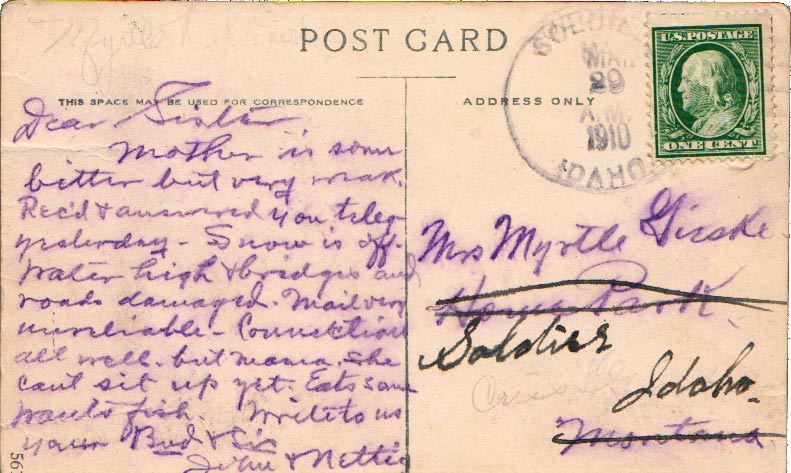 POST CARD
THIS SPACE MAY BE USED FOR CORRESPONDENCE
ADDRESS ONLY
SOLDIER
MAR
29
A.M.
1910
IDAHO
U.S. POSTAGE
ONE CENT
Dear Sister
Mother is some
bitter but very weak.
Rec'd & answered you teleg
yesterday - Snow is off.
Water high & bridges and
roads damaged. Mail very
unreliable - Connections
all well. but mama. She
can't sit up yet. Eats some
wants fish. Write to us
your Bud & Sis
John & Nettie
Mrs Myrtle Gieske
Home Park
Soldier
Idaho.
Montana